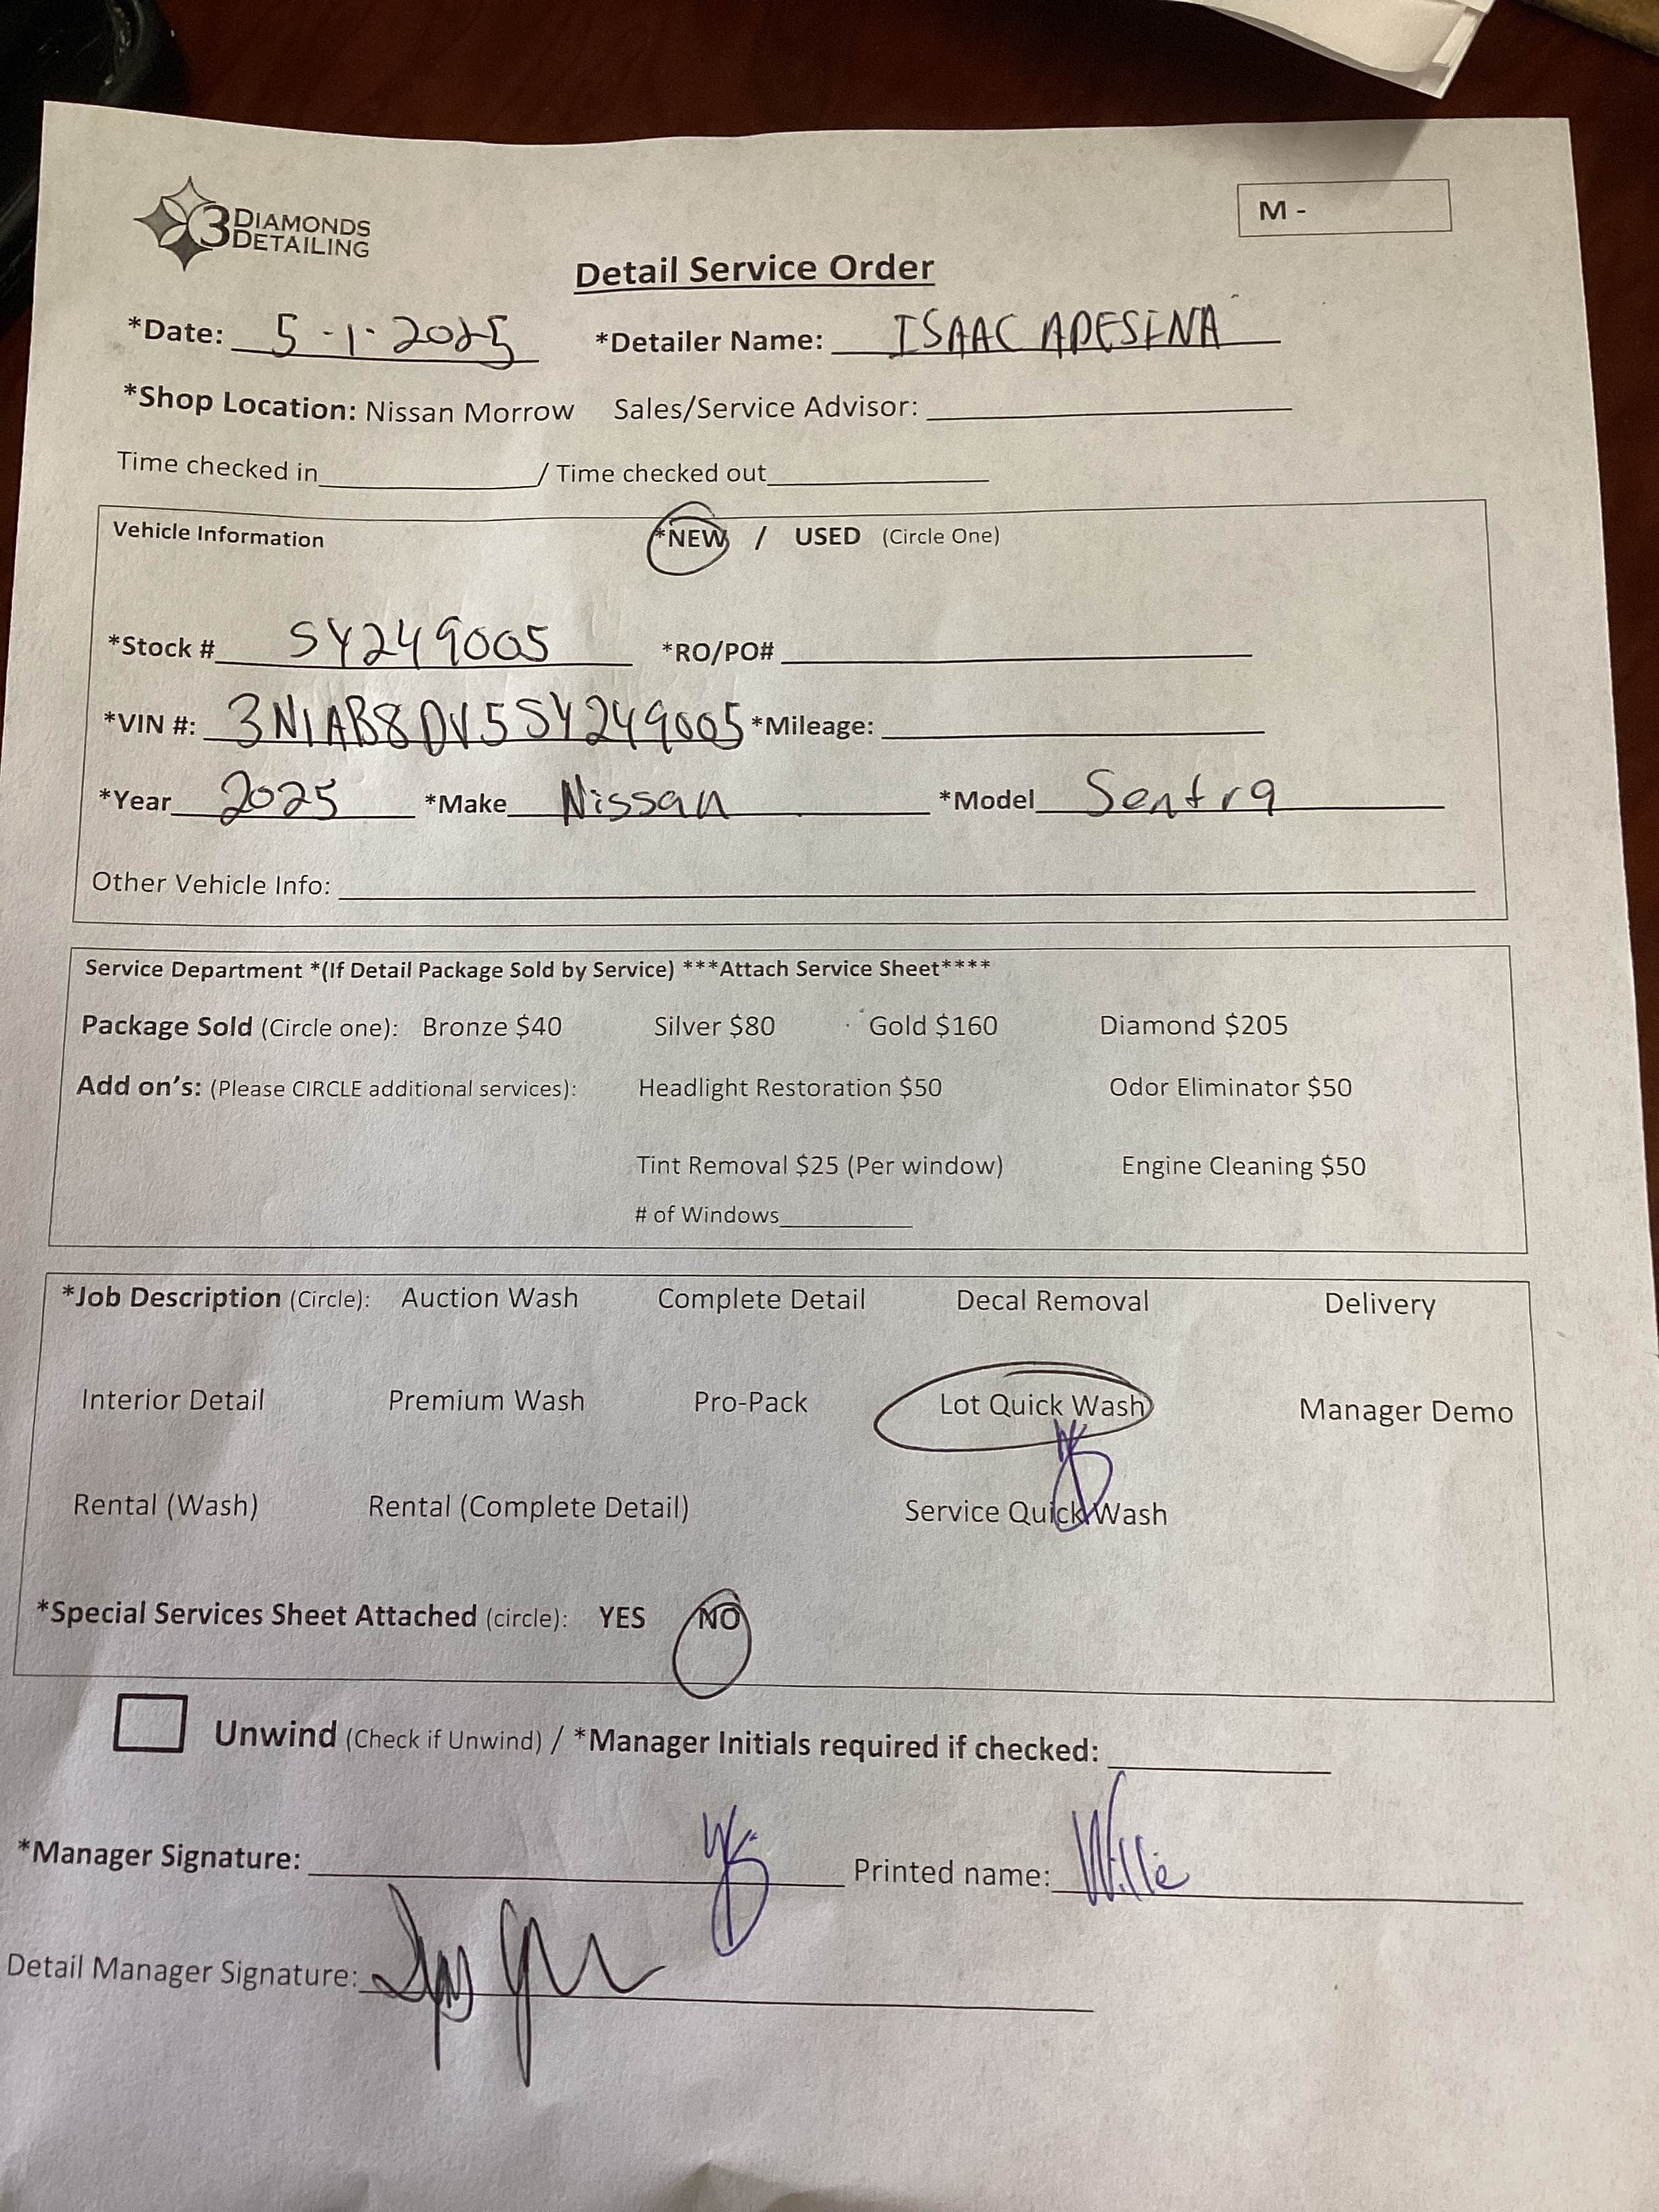 3 DIAMONDS
DETAILING
M -
Detail Service Order
*Date: 5-1-2025 *Detailer Name: ISAAC ADESINA
*Shop Location: Nissan Morrow Sales/Service Advisor:
Time checked in / Time checked out
Vehicle Information *NEW / USED (Circle One)
*Stock # SY249005 *RO/PO#
*VIN #: 3N1AB8DV5SY249005 *Mileage:
*Year 2025 *Make Nissan *Model Sentra
Other Vehicle Info:
Service Department *(If Detail Package Sold by Service) ***Attach Service Sheet****
Package Sold (Circle one): Bronze $40 Silver $80 Gold $160 Diamond $205
Add on's: (Please CIRCLE additional services): Headlight Restoration $50 Odor Eliminator $50
Tint Removal $25 (Per window) Engine Cleaning $50
# of Windows
*Job Description (Circle): Auction Wash Complete Detail Decal Removal Delivery
Interior Detail Premium Wash Pro-Pack Lot Quick Wash Manager Demo
Rental (Wash) Rental (Complete Detail) Service Quick Wash
*Special Services Sheet Attached (circle): YES NO
Unwind (Check if Unwind) / *Manager Initials required if checked:
*Manager Signature: Printed name: Willie
Detail Manager Signature: